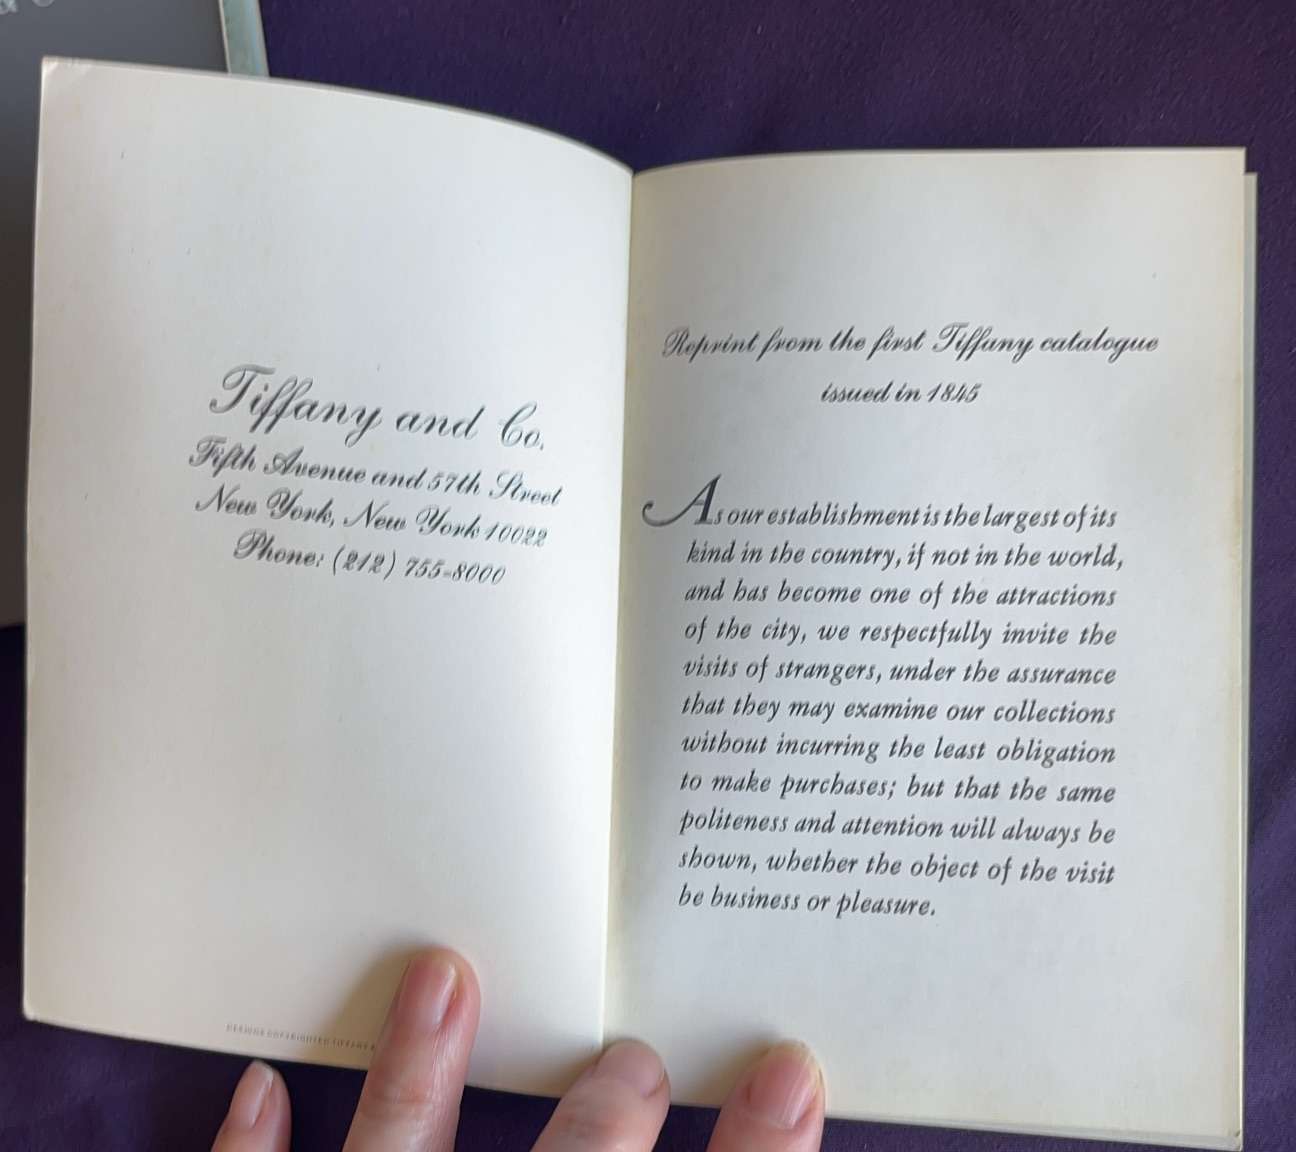 Tiffany and Co.
Fifth Avenue and 57th Street
New York, New York 10022
Phone: (212) 755-8000
DESIGNS COPYRIGHTED TIFFANY
Reprint from the first Tiffany catalogue
issued in 1845
As our establishment is the largest of its
kind in the country, if not in the world,
and has become one of the attractions
of the city, we respectfully invite the
visits of strangers, under the assurance
that they may examine our collections
without incurring the least obligation
to make purchases; but that the same
politeness and attention will always be
shown, whether the object of the visit
be business or pleasure.